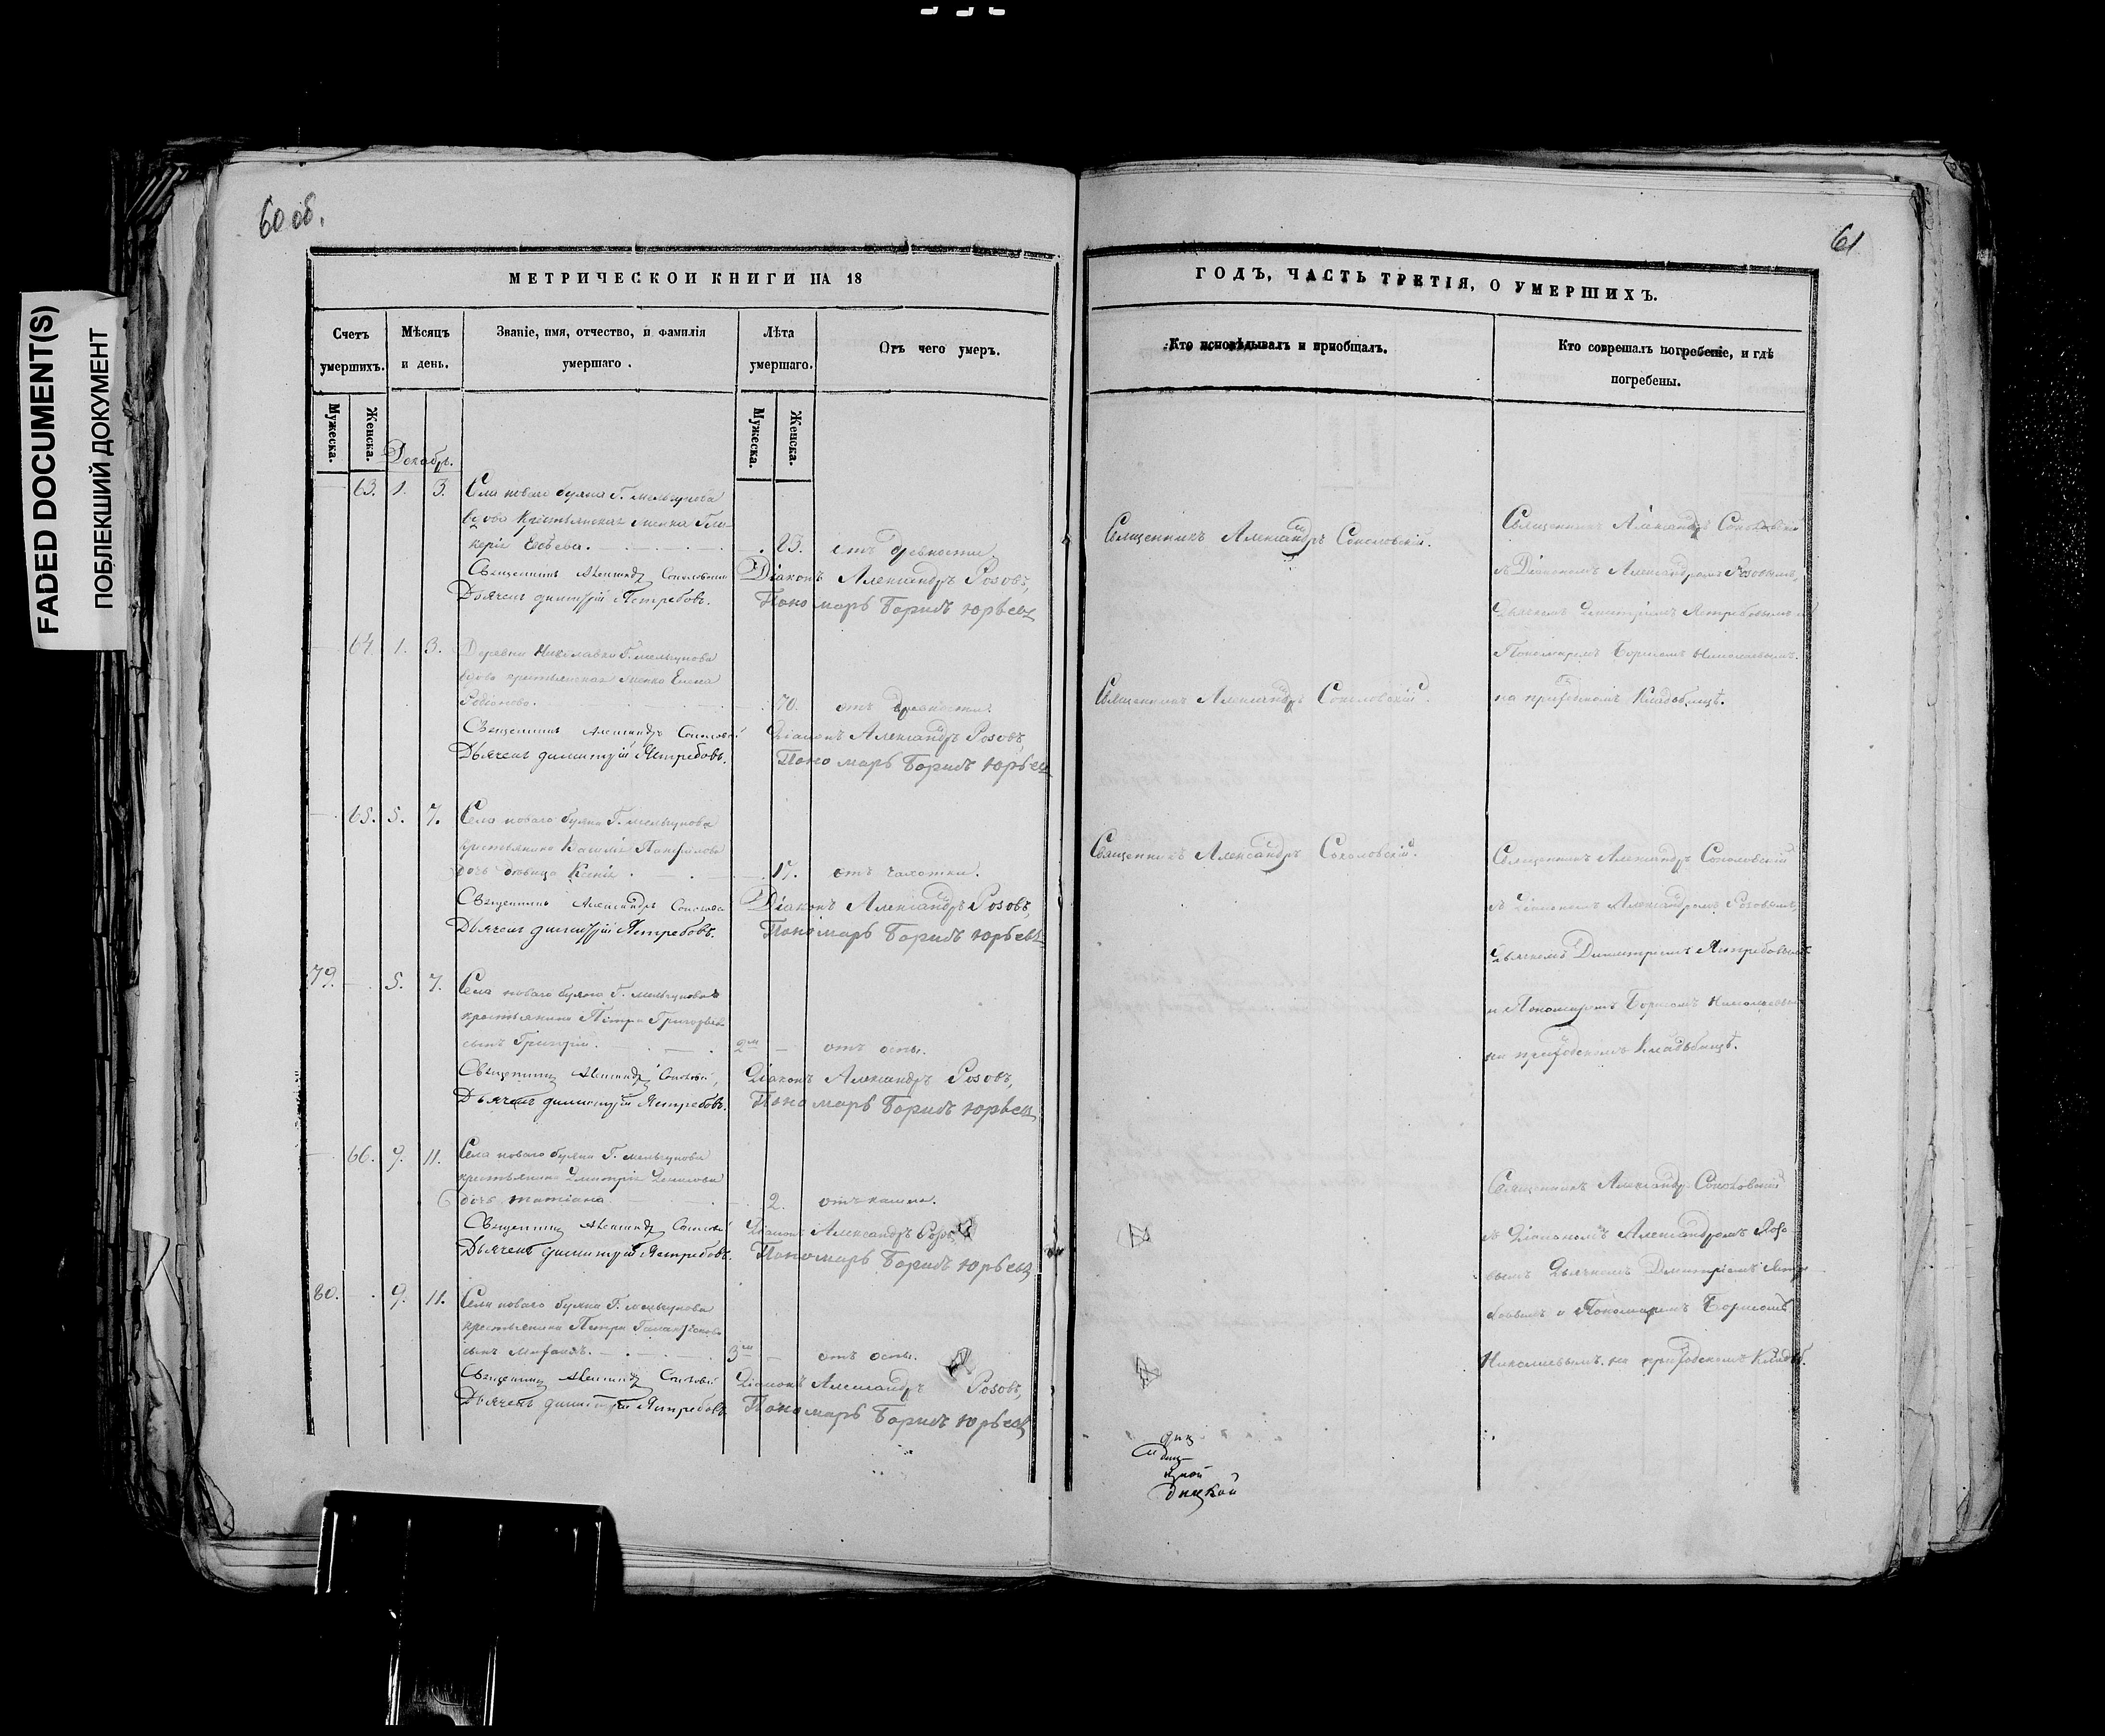 FADED DOCUMENT(S)
ПОБЛЕКШИЙ ДОКУМЕНТ
60 об.
МЕТРИЧЕСКОИ КНИГИ НА 18
Счетъ умершихъ.
Мѣсяцъ и день.
Званіе, имя, отчество, и фамилія умершаго.
Лѣта умершаго.
Отъ чего умеръ.
Мужеска.
Женска.
Мужеска.
Женска.
Декабр.
63. 1. 3. Села новаго буяна Г. мельгунова
вдова крестьянская женка Гли-
керіа 83. отъ древности
Священникъ Александръ Соколовскій Діаконъ Александръ Розовъ,
Дьячекъ димитрій Ястребовъ. Пономарь Борисъ Юрьевъ
64. 1. 3. Деревни Николавки Г. мельгунова
вдова крестьянская женка Елена
Родіонова. 70. отъ древности.
Священникъ Александръ Соколовскій Діаконъ Александръ Розовъ,
Дьячекъ димитрій Ястребовъ. Пономарь Борисъ Юрьевъ
65. 5. 7. Села новаго буяна Г. мельгунова
крестьянина Касиліа Панфилова
дочь дѣвица Ксеніа 17. отъ чахотки.
Священникъ Александръ Діаконъ Александръ Розовъ,
Дьячекъ димитрій Ястребовъ. Пономарь Борисъ Юрьевъ
79. 5. 7. Села новаго буяна Г. мельгунова
крестьянина Петра Григорьева
сынъ Григорій. 2м отъ оспы.
Священникъ Александръ Діаконъ Александръ Розовъ,
Дьячекъ димитрій Ястребовъ. Пономарь Борисъ Юрьевъ
66. 9. 11. Села новаго буяна Г. мельгунова
крестьянина Димитріа Денисова
дочь татіана 2. отъ кашли.
Священникъ Александръ Діаконъ Александръ Розовъ
Дьячекъ димитрій Ястребовъ. Пономарь Борисъ Юрьевъ
80. 9. 11. Села новаго буяна Г. мельгунова
крестьянина Петра
сынъ 3м отъ оспы.
Священникъ Александръ Діаконъ Александръ Розовъ,
Дьячекъ димитрій Ястребовъ Пономарь Борисъ Юрьевъ
61
ГОДЪ, ЧАСТЬ ТРЕТІЯ, О УМЕРШИХЪ.
Кто исповѣдывалъ и пріобщалъ.
Кто соврешалъ погребеніе, и гдѣ погребены.
Священникъ Александръ Соколовскій.
Священникъ Александръ Соколовскій
съ Діакономъ Александромъ Розовымъ,
Дьячкомъ Димитріемъ Ястребовымъ и
Пономаремъ Борисомъ Николаевымъ.
Священникъ Александръ Соколовскій.
на приходскомъ Кладбищѣ.
Священникъ Александръ Соколовскій.
Священникъ Александръ Соколовскій
съ Діакономъ Александромъ Розовымъ,
Дьячкомъ Димитріемъ Ястребовымъ
и Пономаремъ Борисомъ Николаевы
на приходскомъ Кладбищѣ.
Священникъ Александръ Соколовскій
съ Діакономъ Александромъ Розо-
вымъ Дьячкомъ Димитріемъ Ястре
бовымъ и Пономаремъ Борисомъ
Николаевымъ. на приходскомъ Кладб.